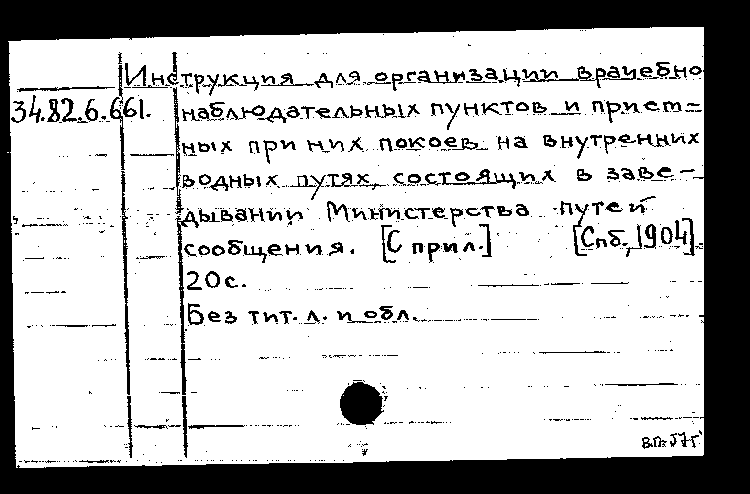 Инструкция для организации врачебно
34.82.6.661. наблюдательных пунктов и прием-
ных при них покоев на внутренних
водных путях, состоящих в заве-
дывании Министерства путей
сообщения. [С прил.] [Спб., 1904].
20 с.
Без тит. л. и обл.